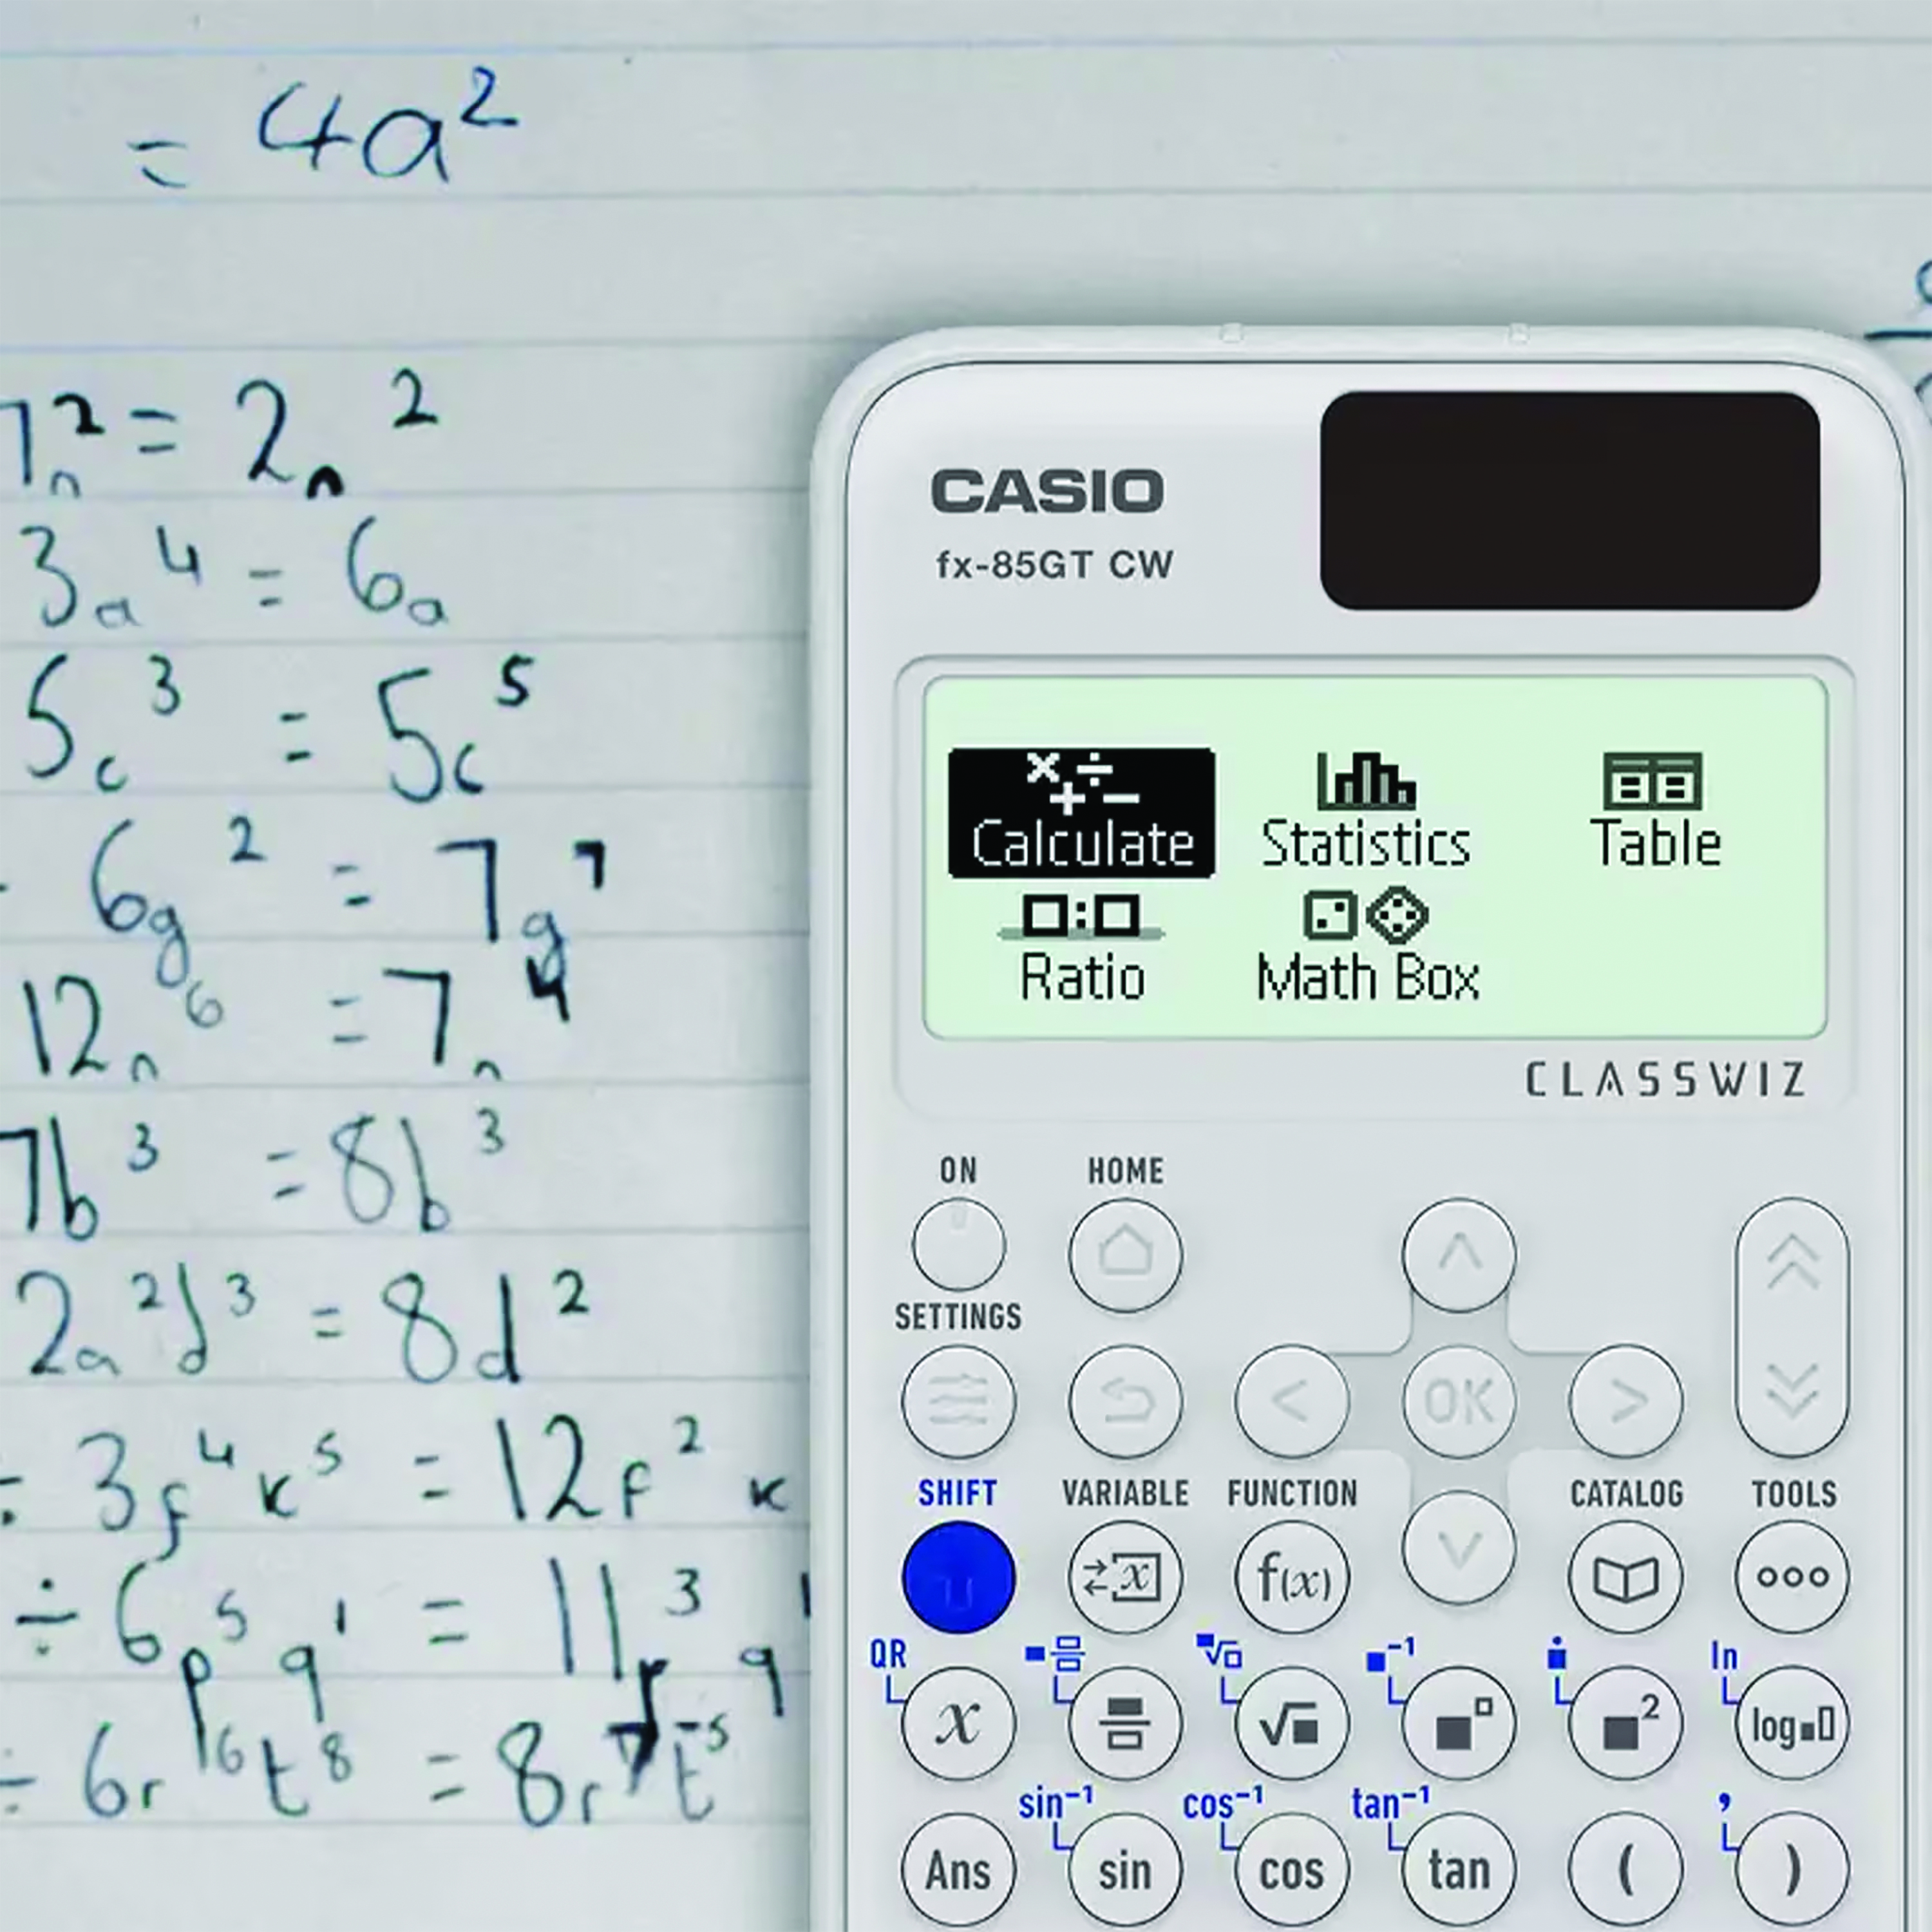 = 4a²
7n² = 2n²
3a⁴ = 6a
5c³ = 5c⁵
6g² = 7g⁷
12n⁶ = 7n⁴
7b³ = 8b³
2a²d³ = 8d²
÷ 3f⁴k⁵ = 12f²k
÷ 6p⁵q¹ = 11p³q¹
÷ 6r¹⁶t⁸ = 8r⁷t⁻⁵
CASIO
fx-85GT CW
×÷
+−
Calculate Statistics Table
□:□
Ratio Math Box
CLASSWIZ
ON HOME
SETTINGS
< OK >
SHIFT VARIABLE FUNCTION CATALOG TOOLS
x f(x)
QR ■⁻¹ ln
x √■ ■□ ■² log■□
sin⁻¹ cos⁻¹ tan⁻¹ ,
Ans sin cos tan ( )